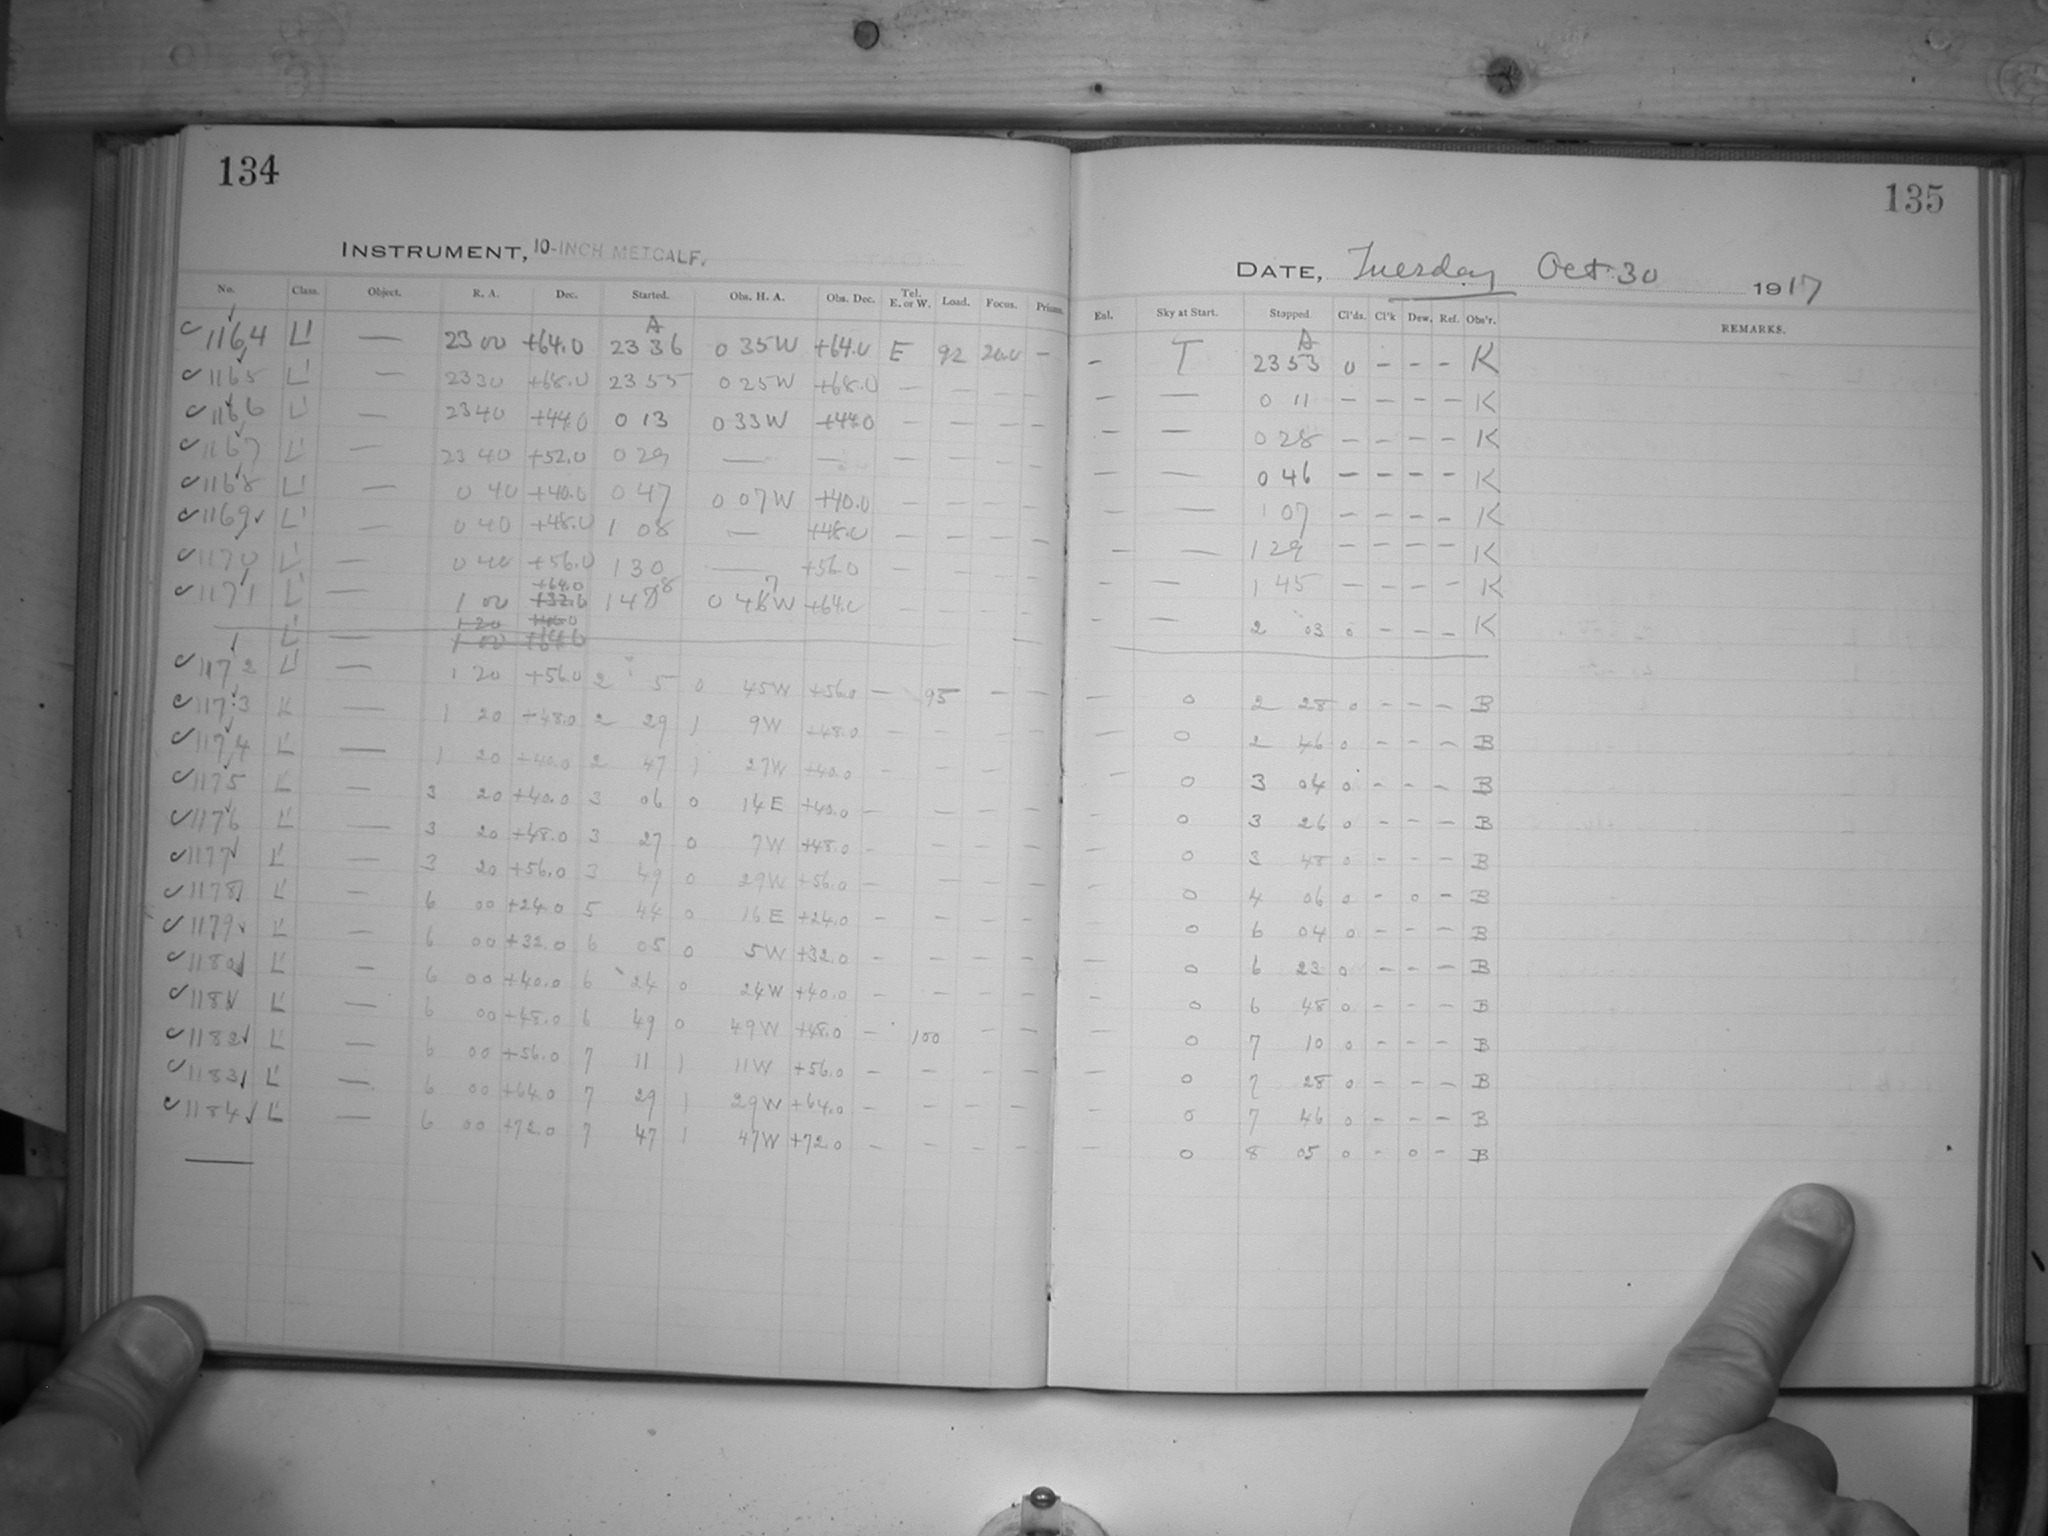 134
INSTRUMENT, 10-INCH METCALF.
No. Class. Object. R. A. Dec. Started. Obs. H. A. Obs. Dec. Tel. E. or W. Load. Focus. Prisms.
A
✓1164 L' — 23 00 +64.0 23 36 0 35W +64.0 E 92 20.0 —
✓1165 L' — 23 30 +68.0 23 55 0 25W +68.0 — — — —
✓1166 L' — 23 40 +44.0 0 13 0 33W +44.0 — — — —
✓1167 L' — 23 40 +52.0 0 29 — — — — — —
✓1168 L' — 0 40 +40.0 0 47 0 07W +40.0 — — — —
✓1169 L' — 0 40 +48.0 1 08 — +48.0 — — — —
✓1170 L' — 0 40 +56.0 1 30 — +56.0 — — — —
+64.0
✓1171 L' — 1 00 +32.0 1 48 0 47W +64.0 — — — —
1 20 +40.0
L' — 1 00 +64.0 —
✓1172 L' — 1 20 +56.0 2 5 0 45W +56.0 — 95 — —
✓1173 L' — 1 20 +48.0 2 29 1 9W +48.0 — — — —
✓1174 L' — 1 20 +40.0 2 47 1 27W +40.0 — — —
✓1175 L' — 3 20 +40.0 3 06 0 14E +40.0 — — — —
✓1176 L' — 3 20 +48.0 3 27 0 7W +48.0 — — — —
✓1177 L' — 3 20 +56.0 3 49 0 29W +56.0 — — — —
✓1178 L' — 6 00 +24.0 5 44 0 16E +24.0 — — — —
✓1179 L' — 6 00 +32.0 6 05 0 5W +32.0 — — — —
✓1180 L' — 6 00 +40.0 6 24 0 24W +40.0 — — — —
✓1181 L' — 6 00 +48.0 6 49 0 49W +48.0 — 100 — —
✓1182 L' — 6 00 +56.0 7 11 1 11W +56.0 — — — —
✓1183 L' — 6 00 +64.0 7 29 1 29W +64.0 — — — —
✓1184 L' — 6 00 +72.0 7 47 1 47W +72.0 — — — —
135
DATE, Tuesday Oct 30 1917
Enl. Sky at Start. Stopped. Cl'ds. Cl'k Dew. Ref. Obs'r. REMARKS.
A
— T 23 53 0 — — — K
— — 0 11 — — — — K
— — 0 28 — — — — K
— — 0 46 — — — — K
— — 1 07 — — — — K
— — 1 29 — — — — K
— — 1 45 — — — — K
— — 2 03 0 — — — K
— 0 2 28 0 — — — B
— 0 2 46 0 — — — B
— 0 3 04 0 — — — B
— 0 3 26 0 — — — B
— 0 3 48 0 — — — B
— 0 4 06 0 — 0 — B
— 0 6 04 0 — — — B
— 0 6 23 0 — — — B
— 0 6 48 0 — — — B
— 0 7 10 0 — — — B
— 0 7 28 0 — — — B
— 0 7 46 0 — — — B
— 0 8 05 0 — 0 — B